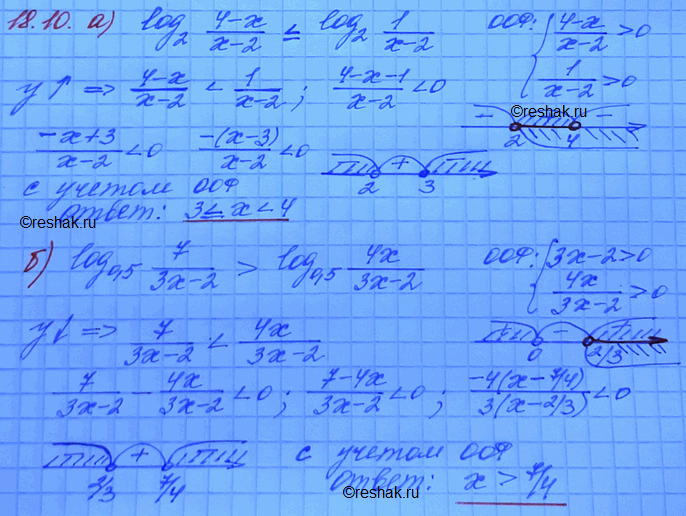 18.10. а) log₂ (4-x)/(x-2) ≤ log₂ 1/(x-2) ООФ: { (4-x)/(x-2) > 0
1/(x-2) > 0
y↑ => (4-x)/(x-2) < 1/(x-2) ; (4-x-1)/(x-2) < 0
©reshak.ru
- + -
2 4
(-x+3)/(x-2) < 0 (-(x-3))/(x-2) < 0
+
2 3
с учетом ООФ
©reshak.ru
ответ: 3 ≤ x < 4
б) log₀,₅ 7/(3x-2) > log₀,₅ 4x/(3x-2) ООФ: { 3x-2>0
4x/(3x-2) > 0
y↓ => 7/(3x-2) < 4x/(3x-2)
-
0 2/3
7/(3x-2) - 4x/(3x-2) < 0 ; (7-4x)/(3x-2) < 0 ; (-4(x-7/4))/(3(x-2/3)) < 0
+
2/3 7/4
с учетом ООФ
ответ: x > 7/4
©reshak.ru